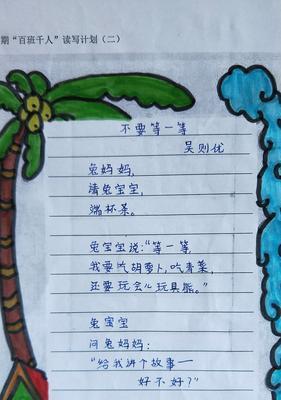 期“百班千人”读写计划（二）
不要等一等
吴则优
兔妈妈，
请兔宝宝，
端杯茶。
兔宝宝说：“等一等，
我要吃胡萝卜，吃青菜，
还要玩会儿玩具熊。”
兔宝宝
问兔妈妈：
“给我讲个故事——
好不好？”